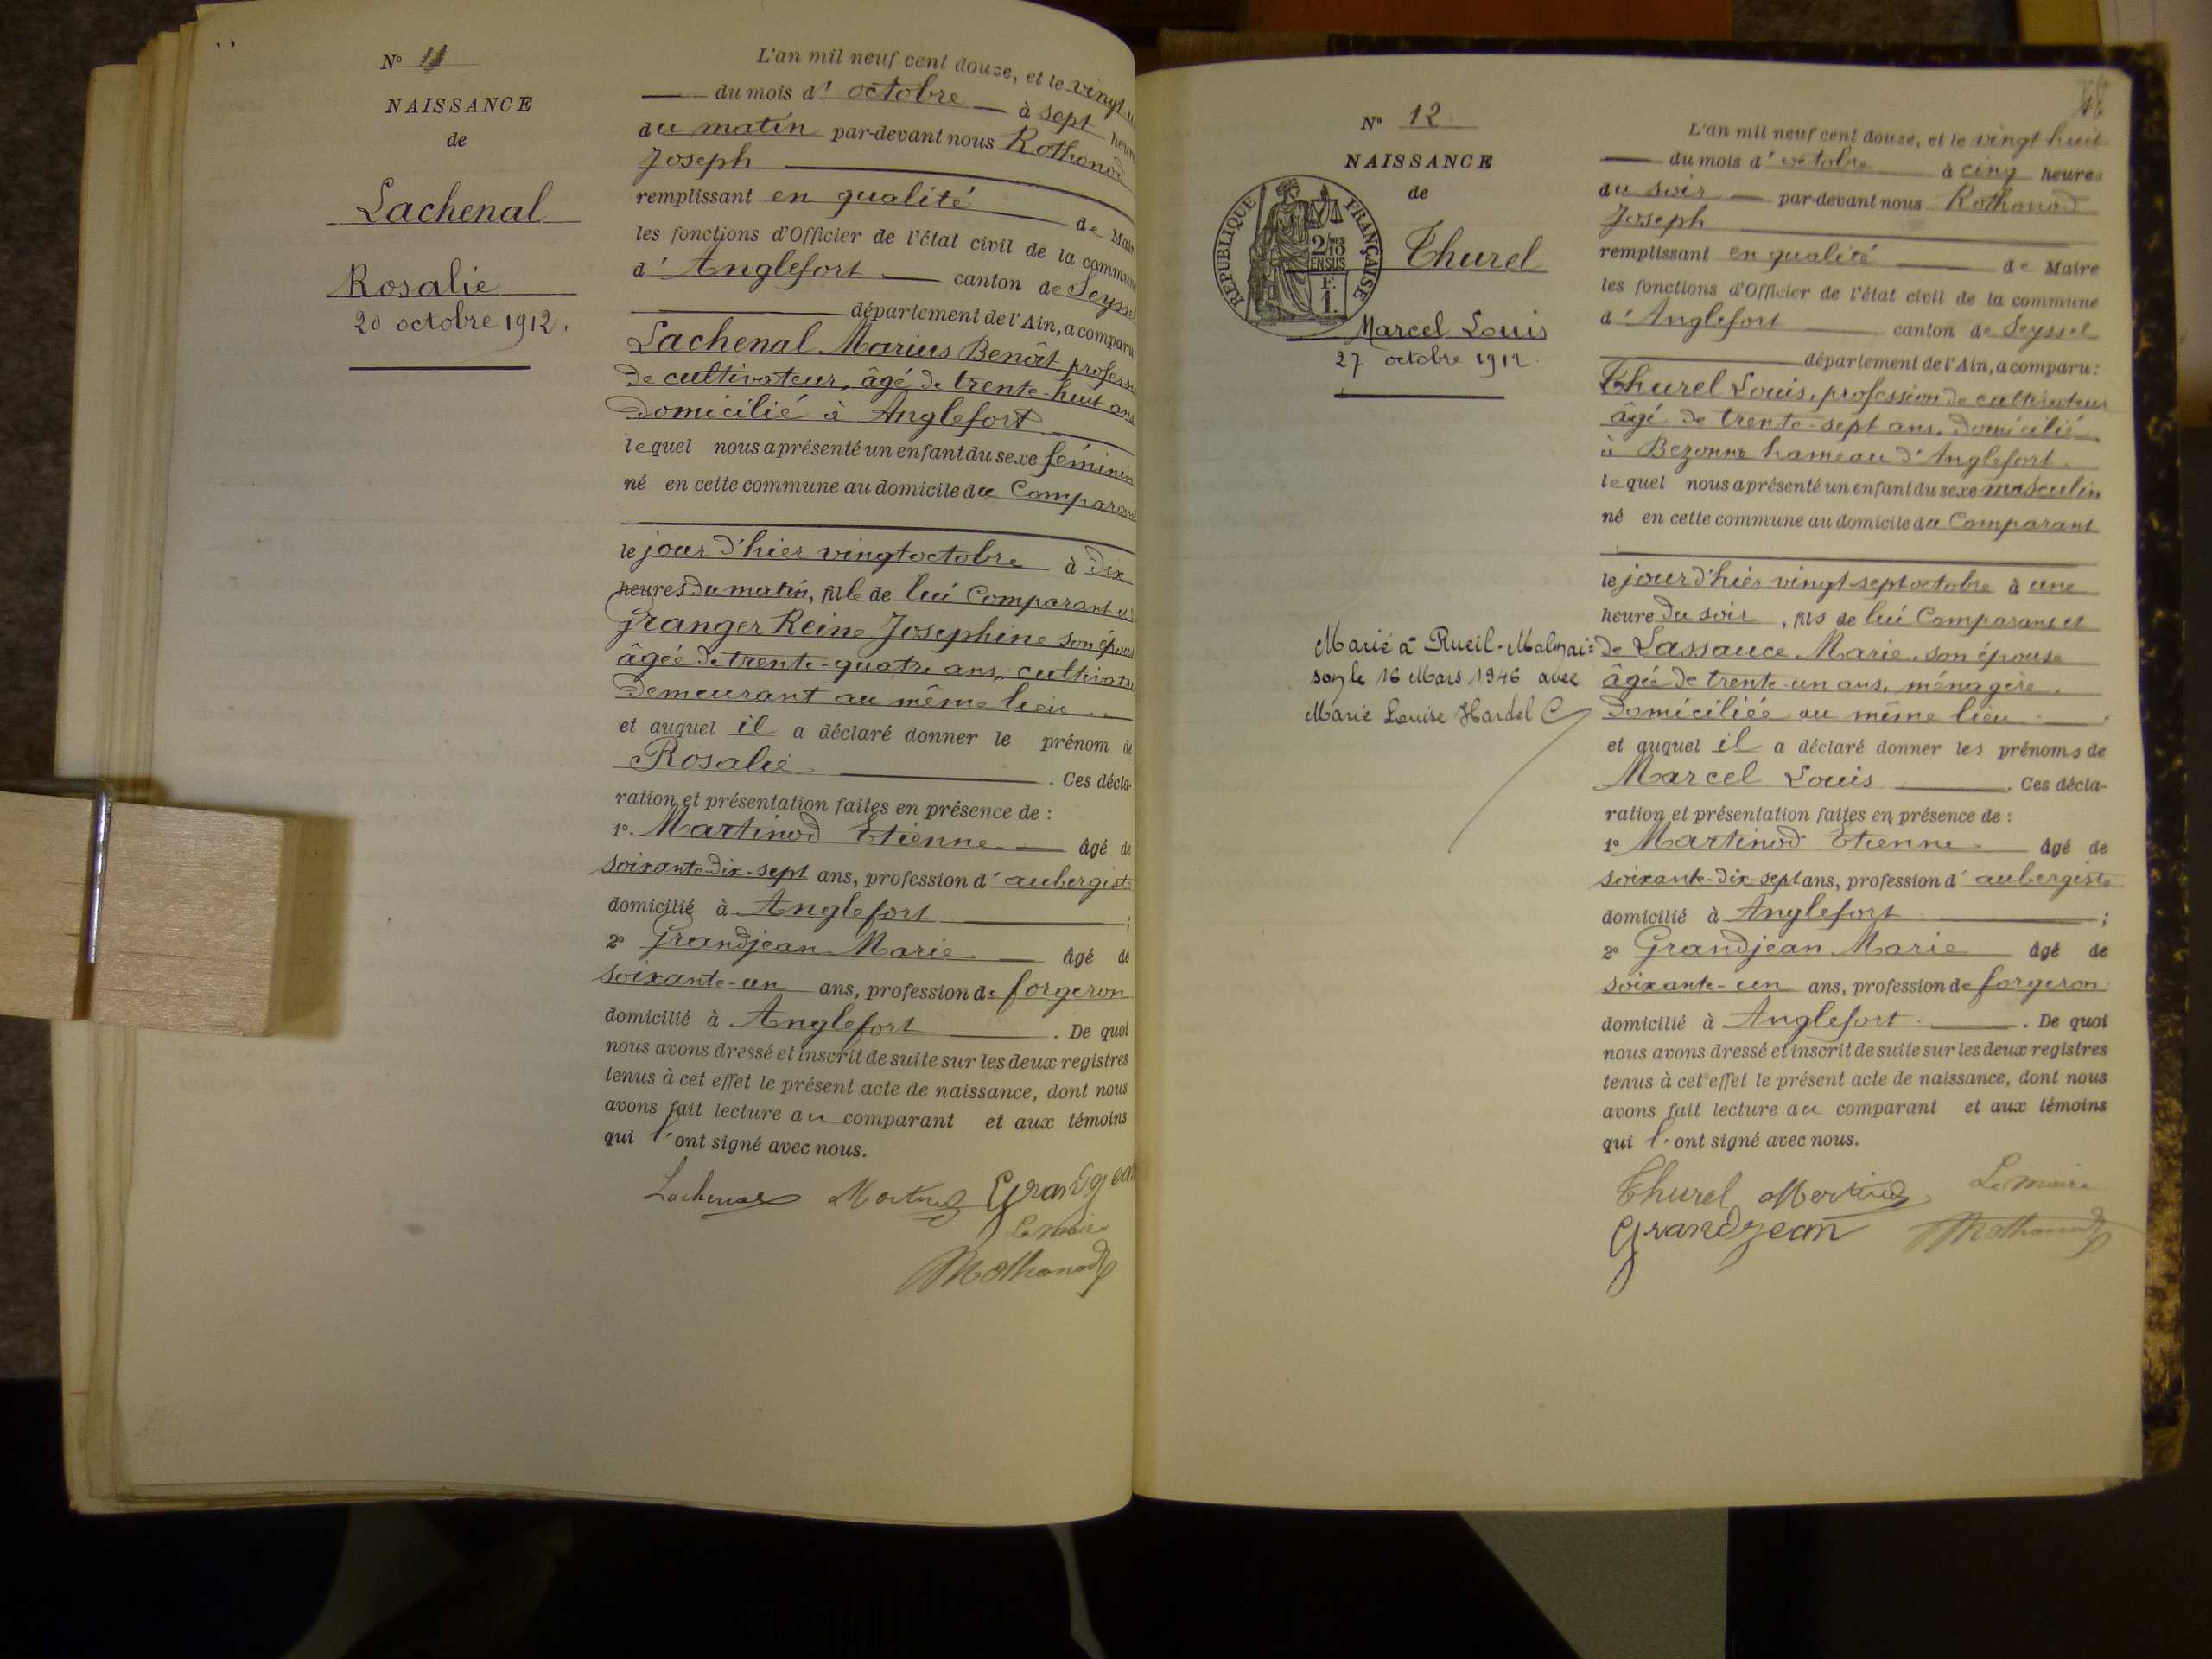 N° 11
NAISSANCE
de
Lachenal
Rosalie
20 octobre 1912.
L'an mil neuf cent douze, et le vingt
du mois d' octobre à sept heures
du matin par-devant nous Rothonod
Joseph
remplissant en qualité de Maire
les fonctions d'Officier de l'état civil de la commune
d' Anglefort canton de Seyssel
département de l'Ain, a comparu:
Lachenal Marius Benoît, profession
de cultivateur, âgé de trente-huit ans
domicilié à Anglefort
lequel nous a présenté un enfant du sexe féminin
né en cette commune au domicile du Comparant
le jour d'hier vingt octobre à dix
heures du matin, fille de lui Comparant et
Granger Reine Josephine son épouse
âgée de trente-quatre ans, cultivatrice
demeurant au même lieu
et auquel il a déclaré donner le prénom de
Rosalie . Ces décla-
ration et présentation faites en présence de :
1° Martinod Etienne âgé de
soixante-dix-sept ans, profession d' aubergiste
domicilié à Anglefort ;
2° Grandjean Marie âgé de
soixante-un ans, profession de forgeron
domicilié à Anglefort . De quoi
nous avons dressé et inscrit de suite sur les deux registres
tenus à cet effet le présent acte de naissance, dont nous
avons fait lecture au comparant et aux témoins
qui l'ont signé avec nous.
Lachenal Martinod Grandjean
Le maire
Rothonod
N° 12
NAISSANCE
de
RÉPUBLIQUE FRANÇAISE
2/10
EN SUS
F.
1.
Thurel
Marcel Louis
27 octobre 1912
Marié à Rueil-Malmai=
son le 16 Mars 1946 avec
Marie Louise Hardel
L'an mil neuf cent douze, et le vingt huit
du mois d' octobre à cinq heures
du soir par-devant nous Rothonod
Joseph
remplissant en qualité de Maire
les fonctions d'Officier de l'état civil de la commune
d' Anglefort canton de Seyssel
département de l'Ain, a comparu:
Thurel Louis, profession de cultivateur
âgé de trente-sept ans, domicilié
à Bezonne hameau d'Anglefort.
lequel nous a présenté un enfant du sexe masculin
né en cette commune au domicile du Comparant
le jour d'hier vingt-sept octobre à une
heure du soir , fils de lui Comparant et
de Lassauce Marie, son épouse
âgée de trente-un ans, ménagère,
domiciliée au même lieu
et auquel il a déclaré donner les prénoms de
Marcel Louis . Ces décla-
ration et présentation faites en présence de :
1° Martinod Etienne âgé de
soixante-dix-sept ans, profession d' aubergiste
domicilié à Anglefort ;
2° Grandjean Marie âgé de
soixante-un ans, profession de forgeron
domicilié à Anglefort . De quoi
nous avons dressé et inscrit de suite sur les deux registres
tenus à cet effet le présent acte de naissance, dont nous
avons fait lecture au comparant et aux témoins
qui l'ont signé avec nous.
Thurel Martinod Le maire
Grandjean Rothonod